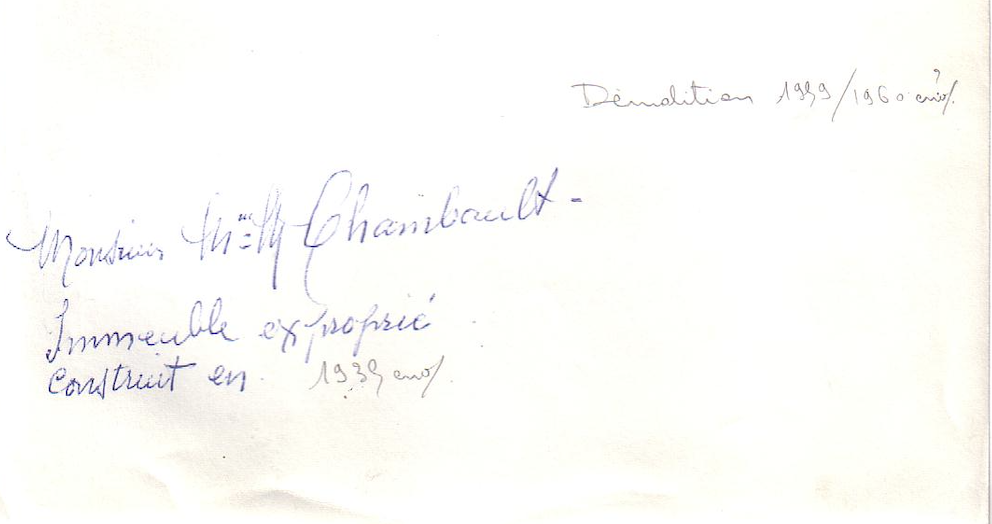 Démolition 1959/1960 env.
Monsieur Chambault -
Immeuble exproprié
Construit en 1935 env.